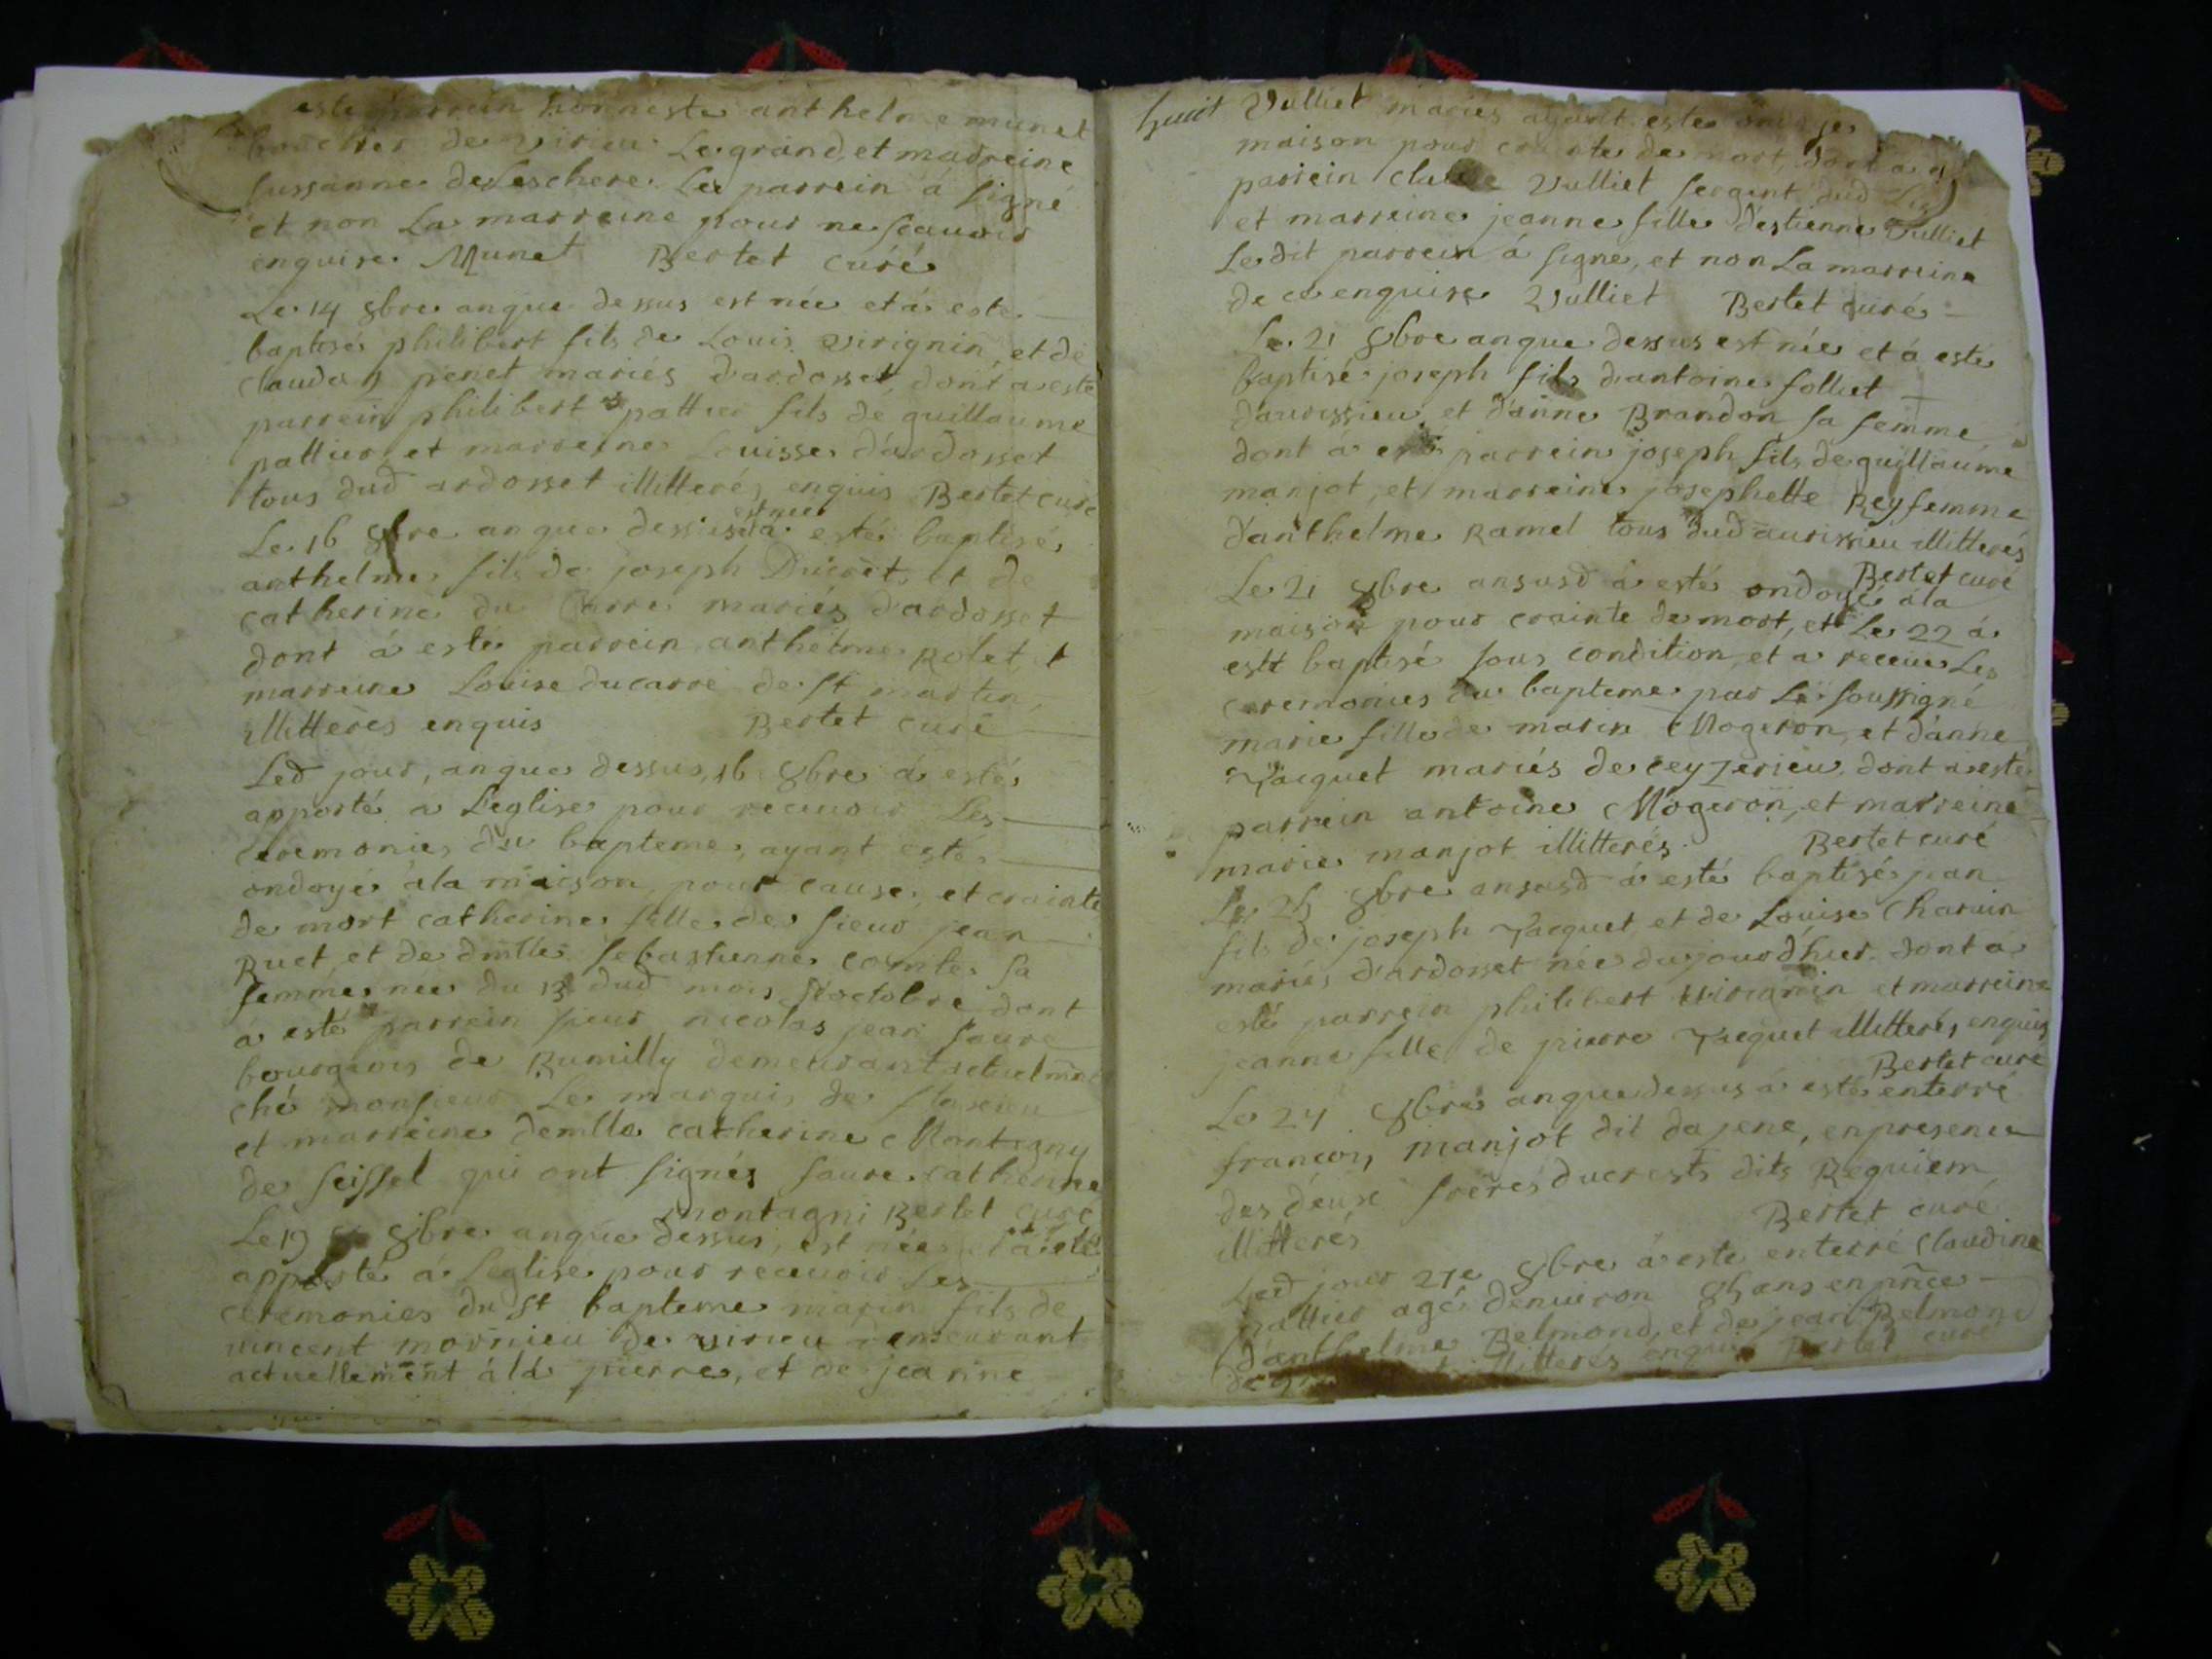 este parrein honneste anthelme munet
boucher de virieu Le grand, et madreine
sussanne deLeschere. Le parrein á signé
et non La marreine pour ne scauoir
enquise. Munet Bertet curé
Le 14 8bre an que dessus est née et á este
baptisé philibert fils de Louis virignin, et de
clauda penet mariés d'ardosset dont a esté
parrein philibert pattier fils de guillaume
pattier, et marreine Louisse d'ardosset
tous dud ardosset illitterés enquis Bertet curé
Le 16 8bre an que dessus est nee á esté baptisé
anthelme fils de joseph Ducret et de
catherine du Carre mariés d'ardosset
dont á esté parrein anthelme Rolet et
marreine Louise ducarre de st martin,
illitterés enquis Bertet curé
Led jour, an que dessus, 16 8bre á esté
apporté a L'eglise pour receuoir Les
ceremonies du bapteme, ayant esté
ondoyé ála maison pour cause, et crainte
de mort catherine fille de sieur jean
Ruet et de dmlle sebastienne comte sa
femme, nee du 13 dud mois d'octobre dont
á esté parrein sieur nicolas jean faure
bourgeois de Rumilly demeurant actuelmet
ché monsieur Le marquis de
et marreine demlle catherine Montagny
de seissel qui ont signés faure. catherine
montagni Bertet curé
Le 19 8bre an que dessus, est née et á esté
apporté á l'eglise pour receuoir Les
ceremonies du st bapteme marin fils de
vincent mornieu de virieu demeurant
actuellement álá pierre, et de jeanne
huit Vulliet mariés ayant este ondoyé
maison pour crainte de mort, dont a
parrein claude Vulliet sergent dud
et marreine jeanne fille d'estienne Vulliet
Ledit parrein á signe, et non La marreine
de ce enquise Vulliet Bertet curé
Le 21 8bre an que dessus est née et á esté
baptisé joseph fils d'antoine folliet
d'aurissieu, et d'anne Brandon sa femme,
dont á esté parrein joseph fils de guillaume
manjot, et marreine josephette Rey femme
d'anthelme Ramel tous dud aurissieu illitterés
Bertet curé
Le 21 8bre ansusd á esté ondoyé ála
maison pour crainte de mort, et Le 22 á
esté baptisé sous condition et a receue Les
ceremonies du bapteme par Le soussigné
marie fille de marin Mogeron, et d'anne
Jacquet mariés de ceyzerieu dont á esté
parrein antoine Mogeron, et marreine
marie manjot illitterés. Bertet curé
Le 23 8bre ansusd á esté baptisé jean
fils de joseph Jacquet et de Louise Charuin
mariés d'ardosset née du jourd'huer dont á
esté parrein philibert virignin et marreine
jeanne fille de pierre Jacquet illitterés enquis
Bertet curé
Le 24 8bre an que dessus á esté enterré
francois manjot dit dajene, en presence
des deux freres ducrests dits Requiem
illitterés Bertet curé
Led jour 27e 8bre á este enterré claudine
pattier agé denuiron ans en pñce
d'anthelme Belmond, et de jean Belmond
illitterés enquis Bertet curé